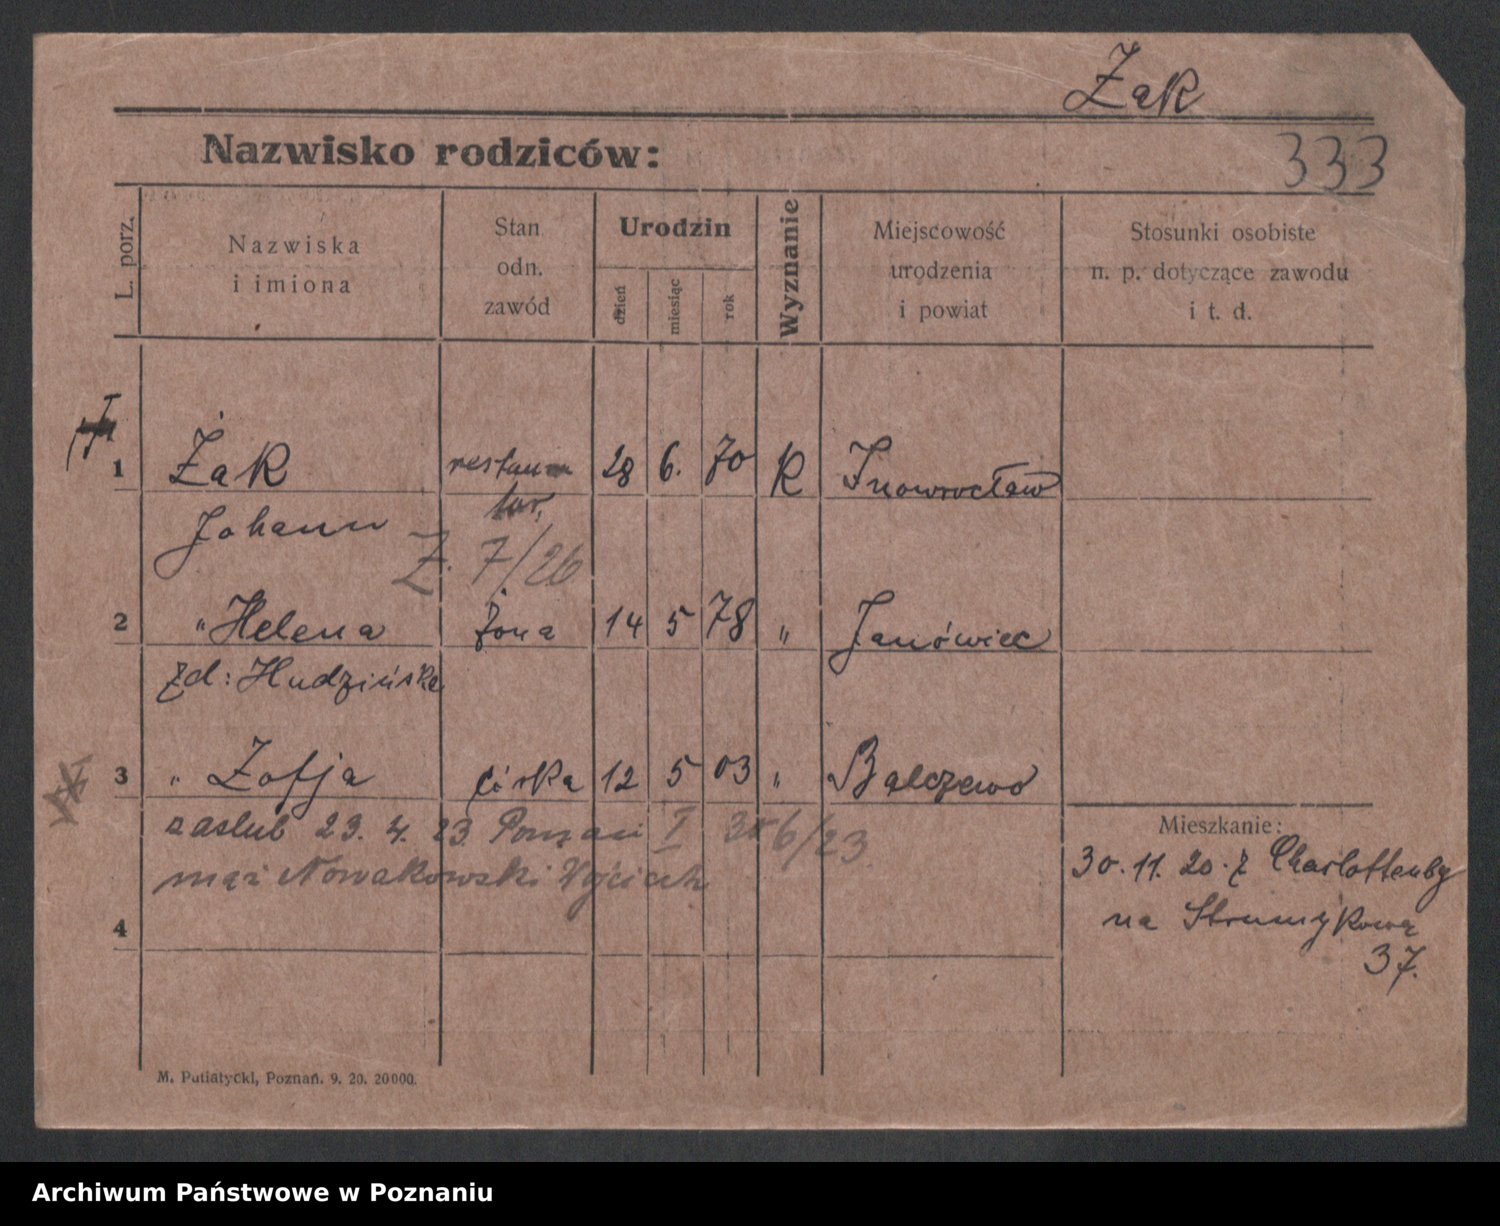 Żak
Nazwisko rodziców:
333
L. porz.
Nazwiska
i imiona
Stan
odn.
zawód
Urodzin
dzień
miesiąc
rok
Wyznanie
Miejscowość
urodzenia
i powiat
Stosunki osobiste
n. p. dotyczące zawodu
i t. d.
1 Żak restaura 28 6. 70 K Inowrocław
Johann tor,
Z. 7/26
2 " Helena żona 14 5 78 " Janówiec
zd: Hudzińska
3 " Zofja córka 12 5 03 " Balczewo
zaslub 23. 4. 23 Poznań I 326/23
mąż Nowakowski Wojciech
4
Mieszkanie:
30. 11. 20. z Charlottenbg
na Strumykową
37.
M. Putiatycki, Poznań. 9. 20. 20000.
Archiwum Państwowe w Poznaniu